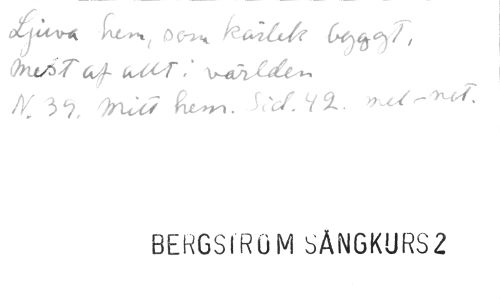 Ljuva hem, som kärlek byggt,
mest af allt i världen
N. 39. Mitt hem. Sid. 42. mel-not.
BERGSTRÖM SÅNGKURS 2